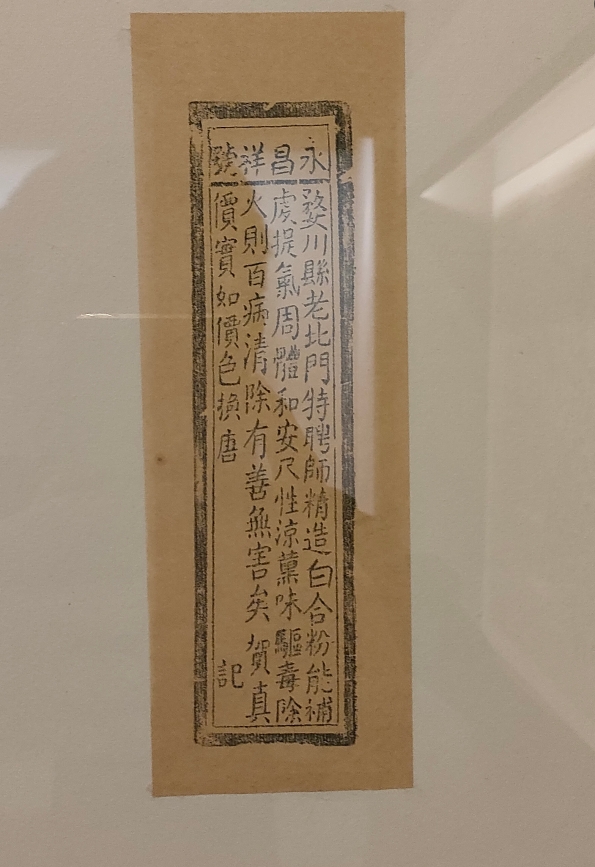 永昌祥號
婺川縣老北門特聘師精造白合粉能補
虔提氣周體和安尺性涼薰味驅毒除
火則百病清除有善無害矣 賀真
價實如價色損唐 記